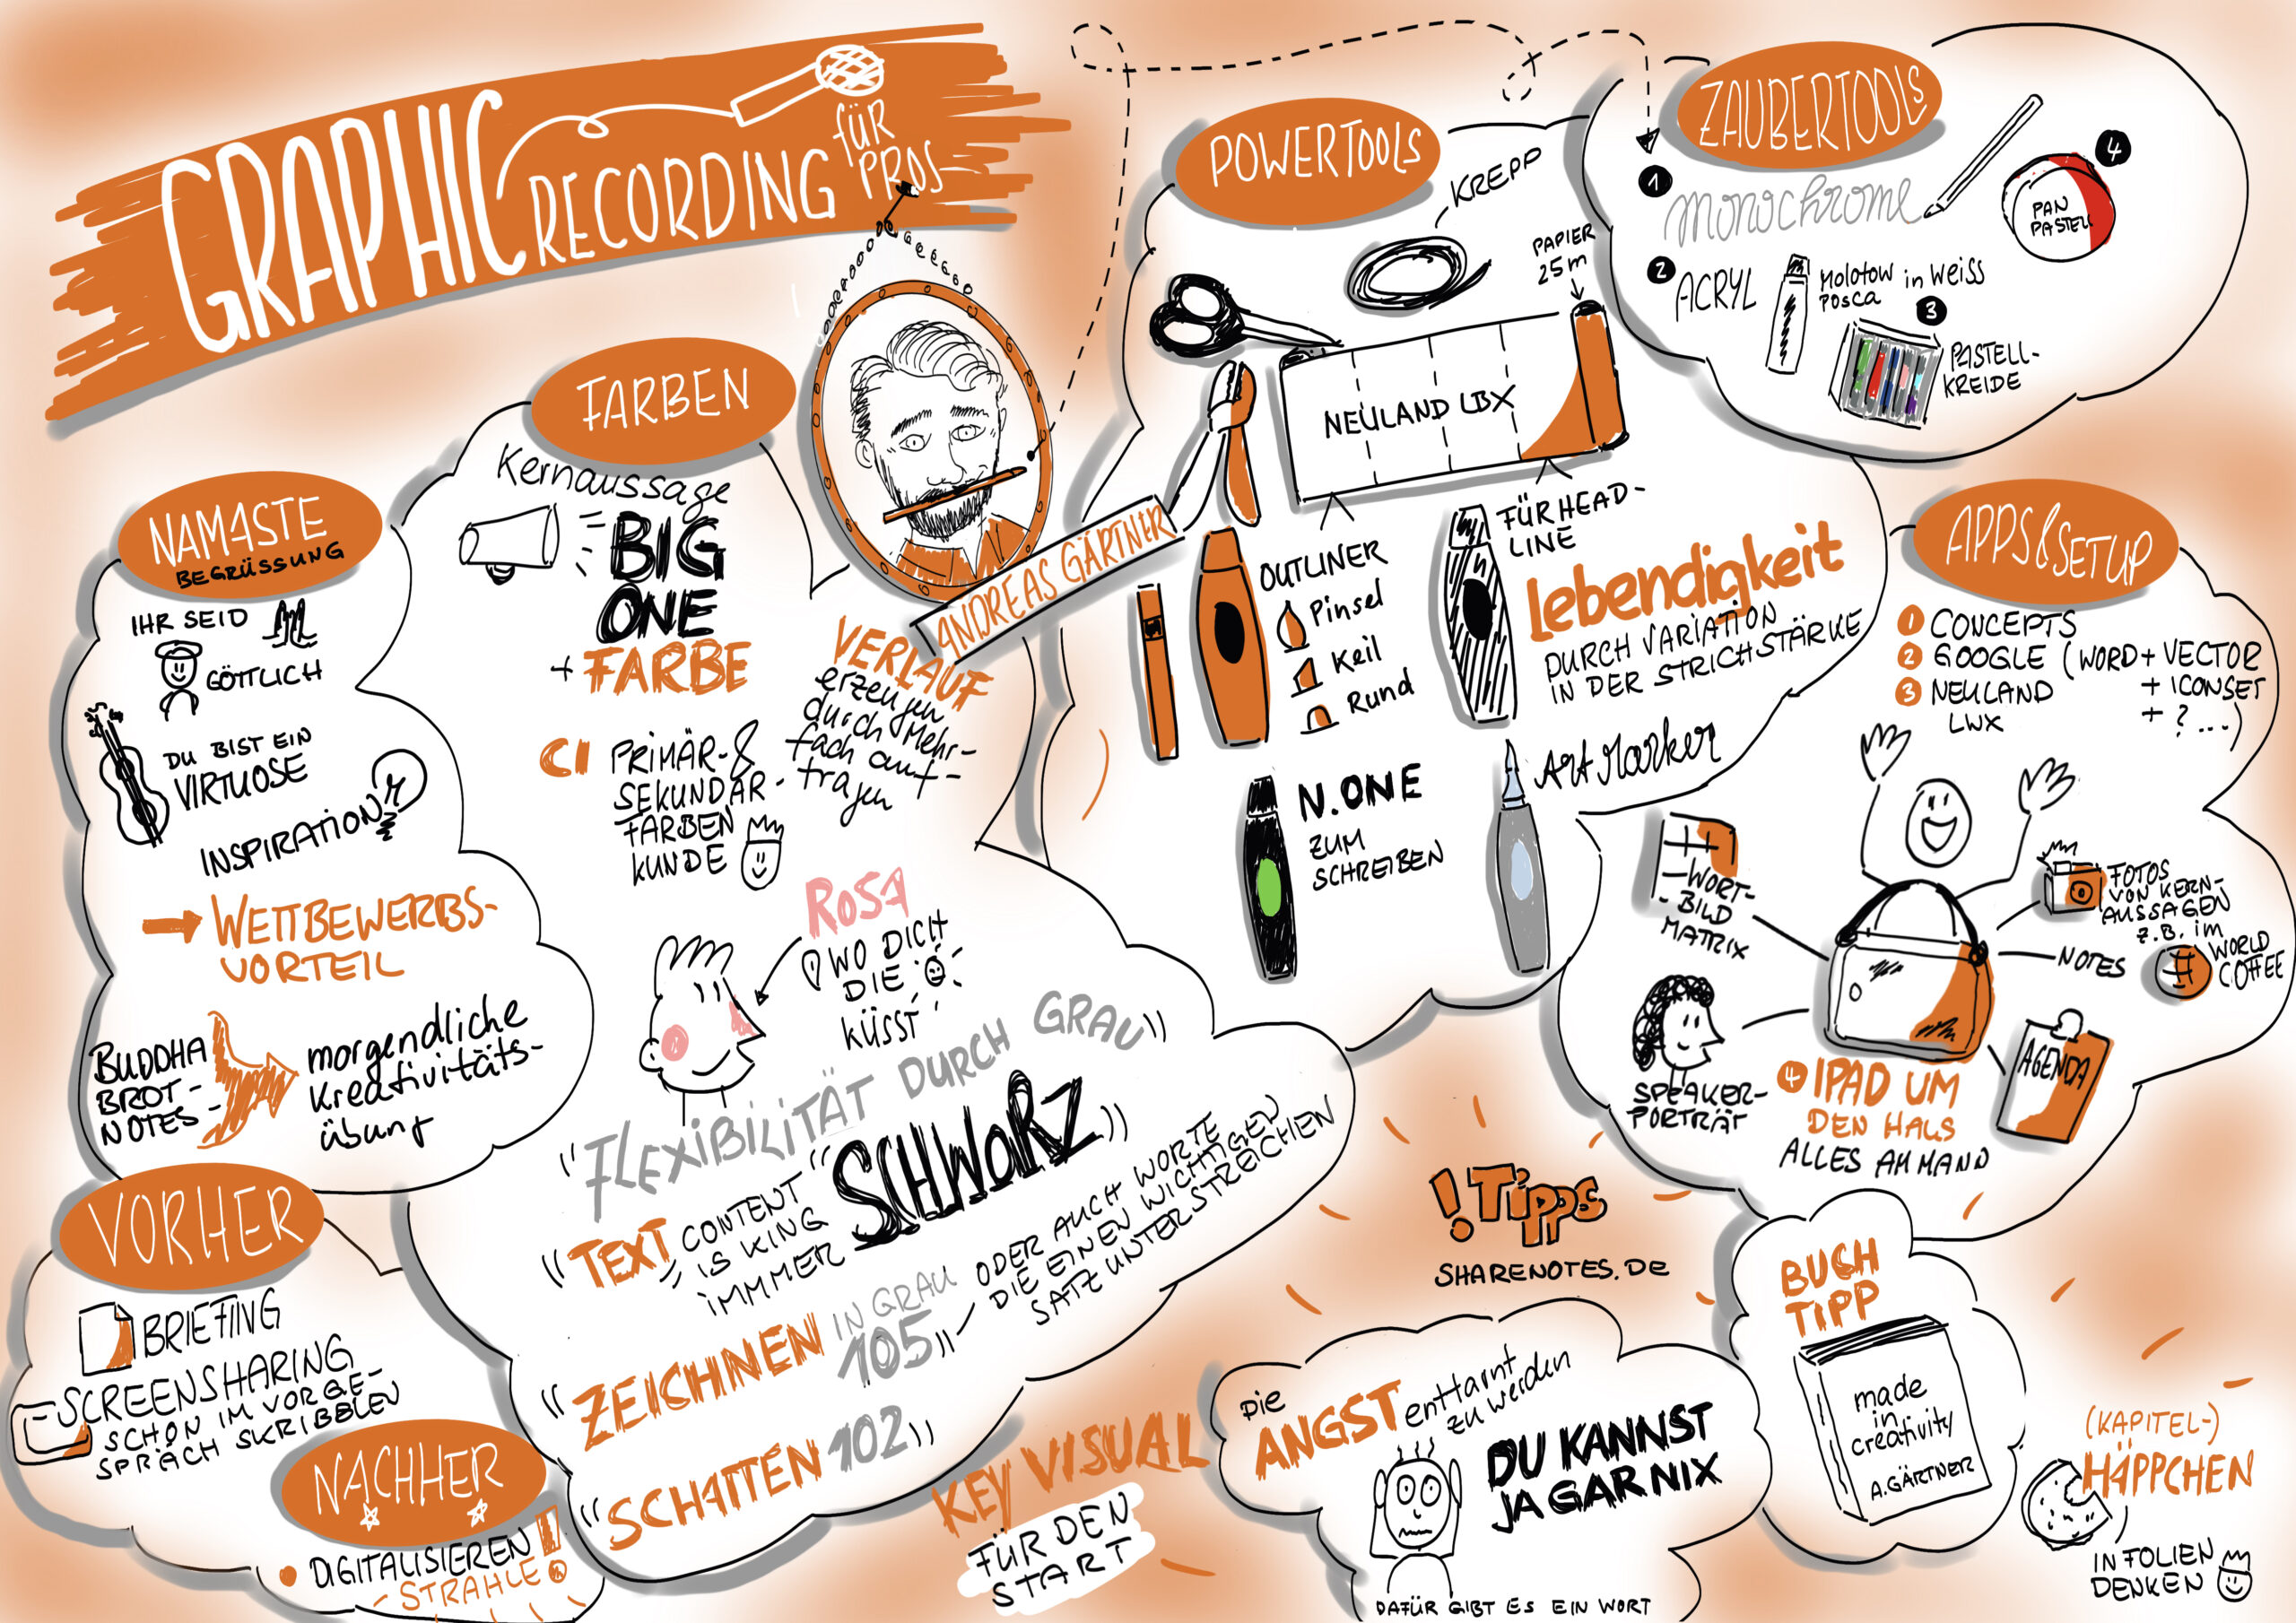 GRAPHIC
RECORDING
für
PROS
ANDREAS GÄRTNER
NAMASTE
BEGRÜSSUNG
IHR SEID
GÖTTLICH
DU BIST EIN
VIRTUOSE
INSPIRATION
WETTBEWERBS-
VORTEIL
BUDDHA
BROT-
NOTES-
morgendliche
Kreativitäts-
übung
VORHER
BRIEFING
SCREENSHARING
SCHON IM VORGE-
SPRÄCH SKRIBBLEN
NACHHER
DIGITALISIEREN!
- STRAHLE!
FARBEN
Kernaussage
BIG
ONE
+ FARBE
VERLAUF
erzeugen
durch Mehr-
fach auf-
tragen
CI PRIMÄR-&
SEKUNDÄR-
FARBEN
KUNDE
ROSA
WO DICH
DIE
KÜSST
"FLEXIBILITÄT DURCH GRAU"
"TEXT" CONTENT
IS KING
IMMER "SCHWARZ"
"ZEICHNEN IN GRAU
105"
ODER AUCH WORTE
DIE EINEN WICHTIGEN
SATZ UNTERSTREICHEN
"SCHATTEN 102"
KEY VISUAL
FÜR DEN
START
POWERTOOLS
KREPP
PAPIER
25m
NEULAND LBX
OUTLINER
Pinsel
Keil
Rund
FÜR HEAD-
LINE
lebendigkeit
DURCH VARIATION
IN DER STRICHSTÄRKE
N.ONE
ZUM
SCHREIBEN
Art Marker
ZAUBERTOOLS
1
monochrome
2 ACRYL
Molotow in Weiss
Posca
3
PASTELL-
KREIDE
4
PAN
PASTELL
APPS&SETUP
1 CONCEPTS
2 GOOGLE (WORD + VECTOR
3 NEULAND + ICONSET
LWX + ? ...)
WORT-
BILD
MATRIX
FOTOS
VON KERN-
AUSSAGEN
z.B. im
WORLD
COFFEE
NOTES
SPEAKER-
PORTRÄT
AGENDA
4 IPAD UM
DEN HALS
ALLES AM MANN
! Tipps
SHARENOTES.DE
Die
ANGST enttarnt
zu werden
DU KANNST
JA GAR NIX
DAFÜR GIBT ES EIN WORT
BUCH
TIPP
made
in
creativity
A.GÄRTNER
(KAPITEL-)
HÄPPCHEN
IN FOLIEN
DENKEN